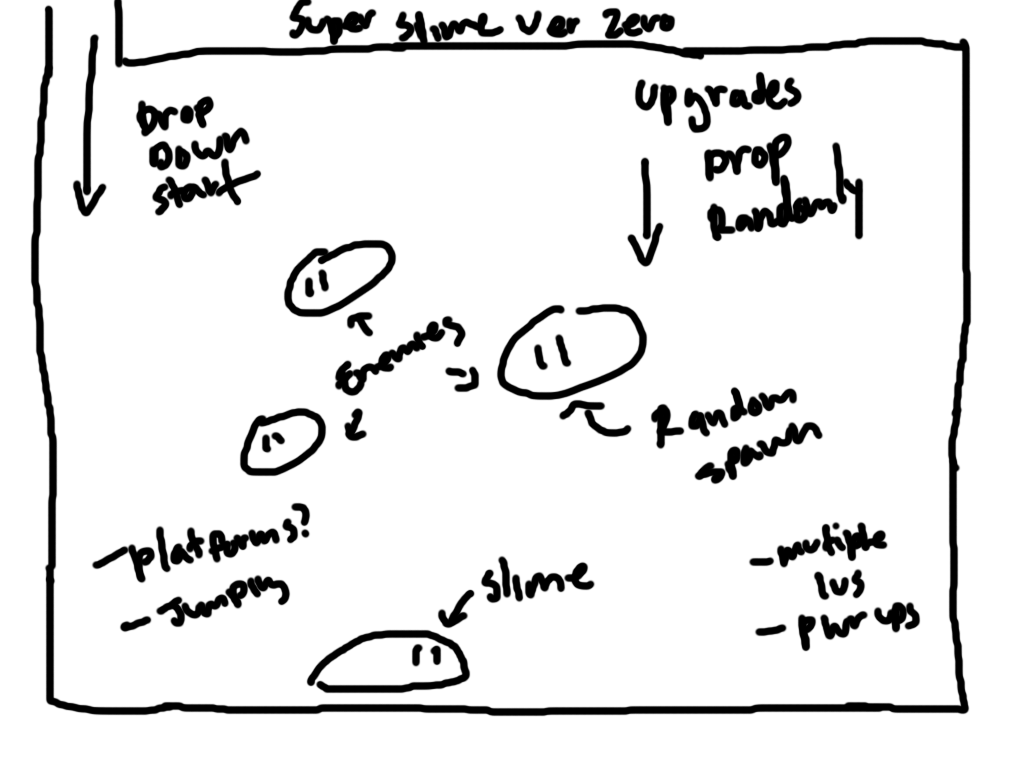 Super Slime Ver Zero
Drop
Down
Start
Upgrades
Drop
Randomly
Enemies
Random
spawn
- Platforms?
- Jumping
Slime
- multiple
lvs
- pwr ups